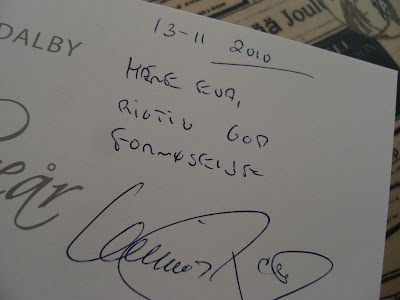 DALBY
13-11 2010
KÆRE EVA,
RIGTIG GOD
FORNØJELSE